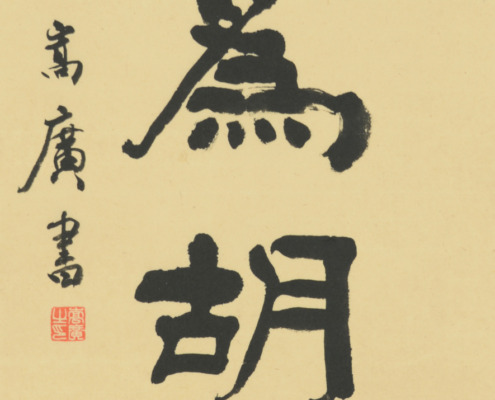 為胡
嵩廣書